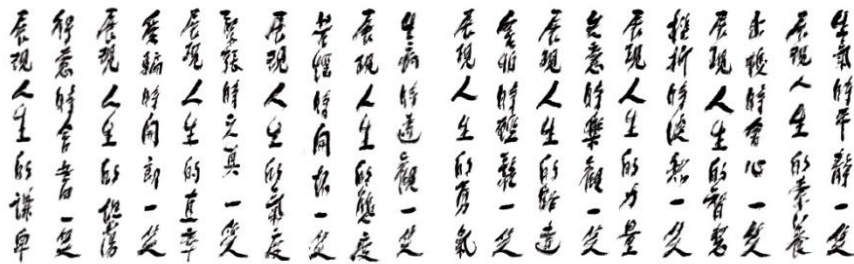 生氣時平靜一笑
展現人生的素養
出糗時會心一笑
展現人生的智慧
挫折時愁一笑
展現人生的力量
失意時樂觀一笑
展現人生的豁達
害怕時輕鬆一笑
展現人生的勇氣
生病時達觀一笑
展現人生的態度
苦時開一笑
展現人生的氣度
緊張時天真一笑
展現人生的直率
受騙時開朗一笑
展現人生的坦蕩
得意時含蓄一笑
展現人生的謙卑